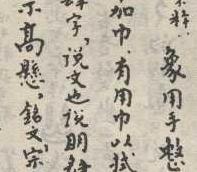 象用手整
加巾，有用巾以拭
字，说文也说明
示高懸。銘文宗